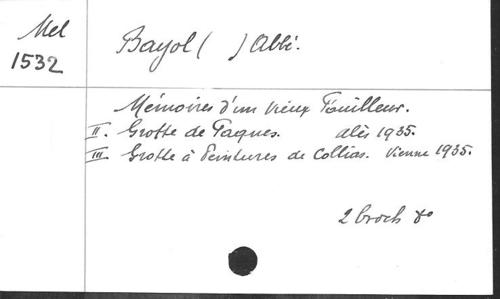 Mel
1532
Bayol ( ) Abbé.
Mémoires d'un vieux Fouilleur.
II. Grotte de Paques. Alès 1935.
III. Grotte à Peintures de Collias. Vienne 1935.
2 broch 8°